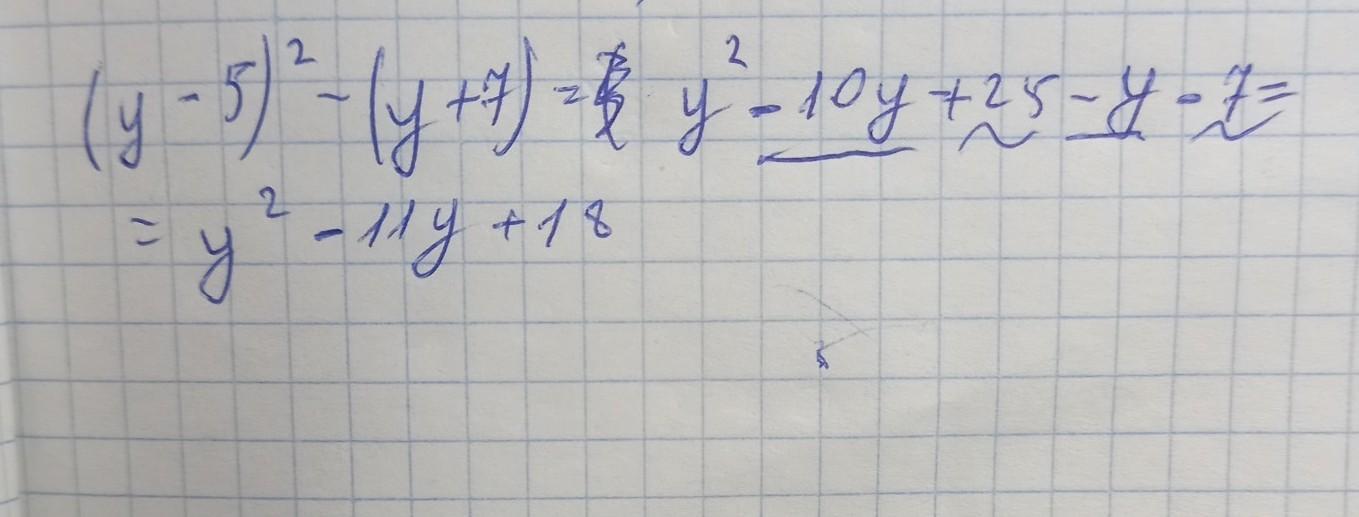 (y - 5)² - (y + 7) = y² - 10y + 25 - y - 7 =
= y² - 11y + 18